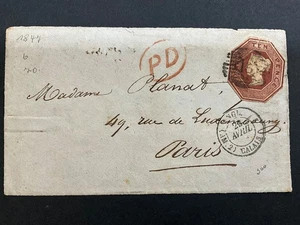 1849
6
20.
PD
TEN PENCE
Madame Planat,
49, rue de Luxembourg
Paris
ANGL.
28
AVRIL
CALAIS